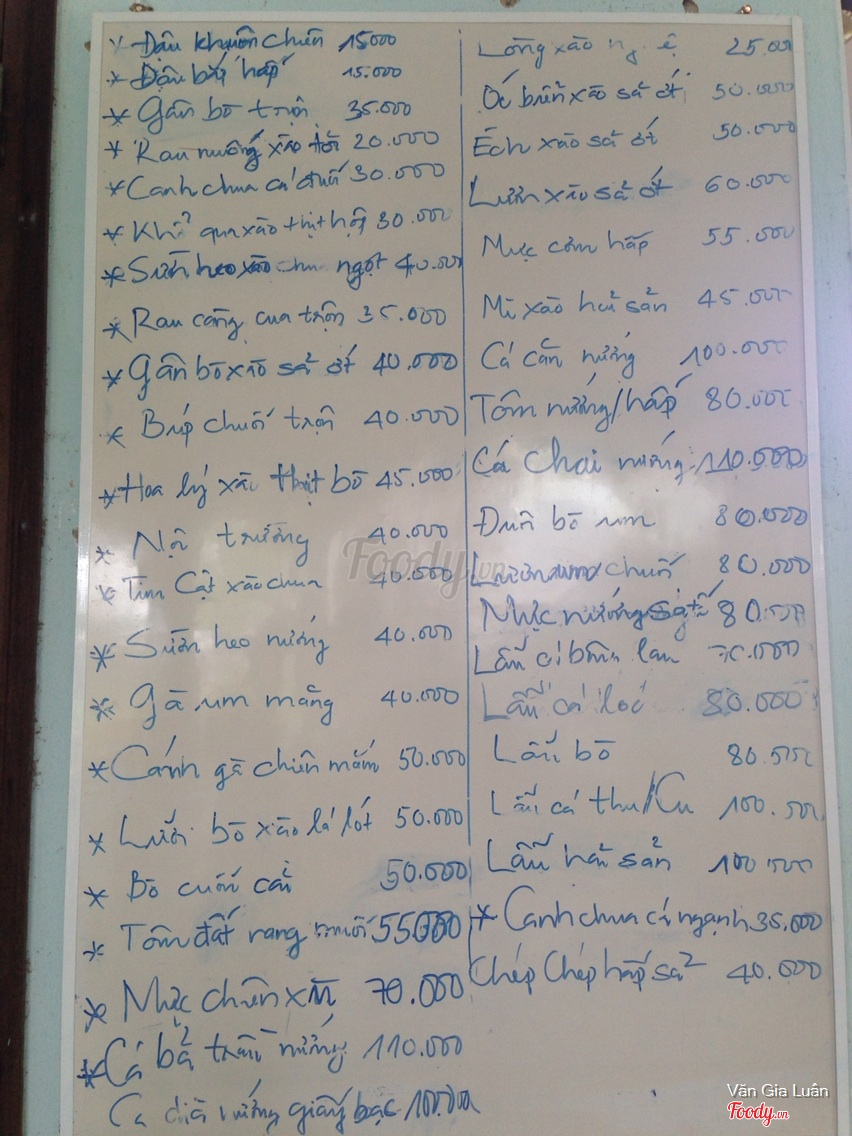 * Đậu khuôn chiên 15000
* Đậu bắp hấp 15.000
* Gân bò trộn 35.000
* Rau muống xào tỏi 20.000
* Canh chua cá đuối 30.000
* Khổ qua xào thịt hột 30.000
* Sườn heo xào chua ngọt 40.000
* Rau càng cua trộn 35.000
* Gân bò xào sả ớt 40.000
* Búp chuối trộn 40.000
* Hoa lý xào thịt bò 45.000
* Nội trường 40.000
* Tim Cật xào chua 40.000
* Sườn heo nướng 40.000
* Gà um măng 40.000
* Cánh gà chiên mắm 50.000
* Lưỡi bò xào lá lốt 50.000
* Bò cuốn cải 50.000
* Tôm đất rang muối 55000
* Mực chiên xù 70.000
* Cá bã trầu nướng 110.000
Cá dìa nướng giấy bạc 100.000
Lòng xào nghệ 25.000
Ốc bươu xào sả ớt 50.000
Ếch xào sả ớt 50.000
Lươn xào sả ớt 60.000
Mực cơm hấp 55.000
Mì xào hải sản 45.000
Cá cằn nướng 100.000
Tôm nướng/hấp 80.000
Cá chai nướng 110.000
Đuôi bò um 80.000
Lươn um chuối 80.000
Mực nướng sa tế 80.000
Lẩu cá 70.000
Lẩu cá lóc 80.000
Lẩu bò 80.500
Lẩu cá thu/Cu 100.500
Lẩu hải sản 100.500
* Canh chua cá ngạnh 35.000
Chép Chép hấp sả 40.000
Foody.vn
Văn Gia Luân
Foody.vn